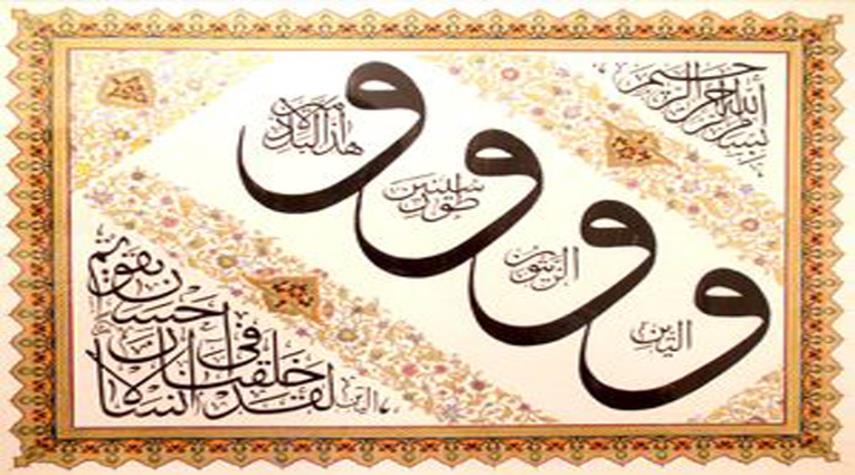 بسم الله الرحمن الرحيم
والتين
والزيتون
وطور سينين
وهذا البلد الأمين
لقد خلقنا الإنسان في أحسن تقويم